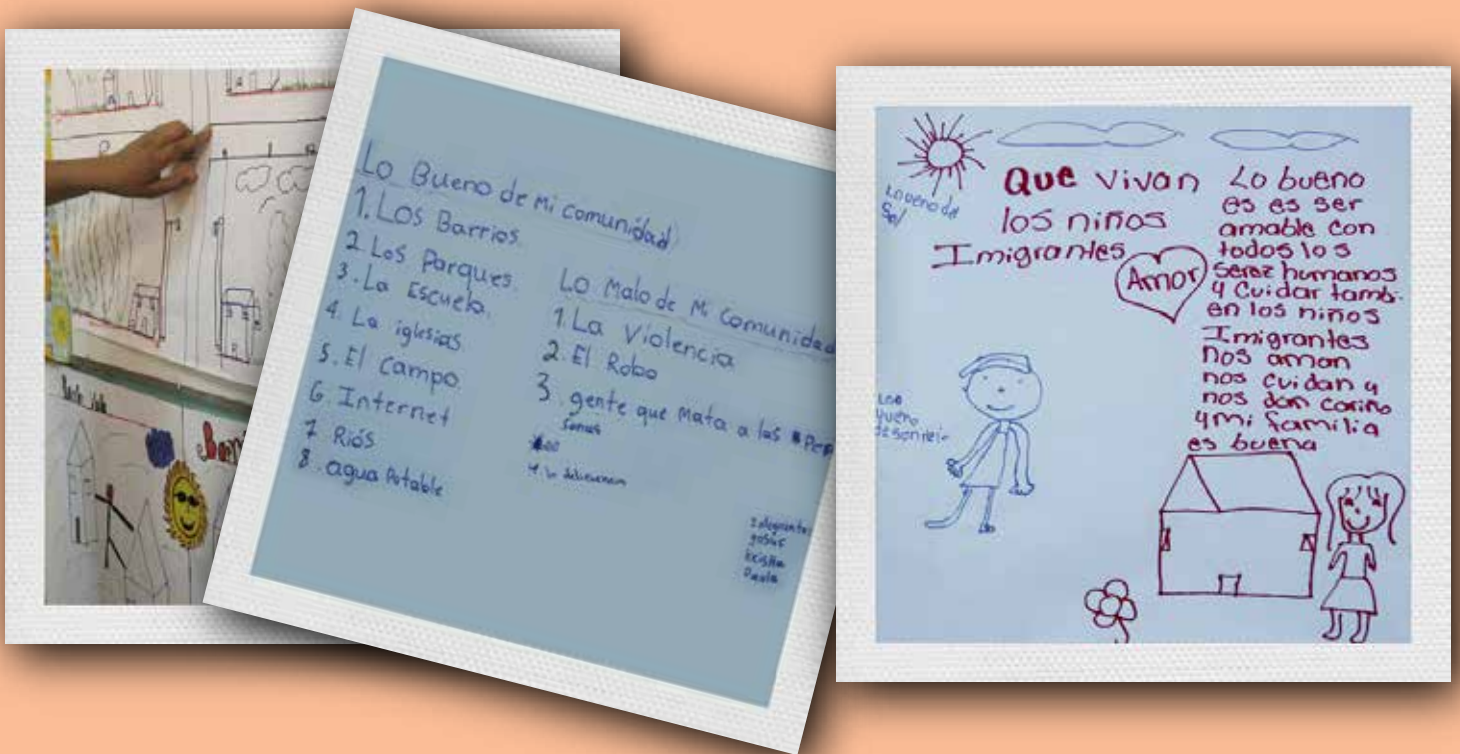 Lo Bueno de Mi comunidad
1. Los Barrios.
2. Los Parques.
3. La Escuela.
4. La iglesias
5. El Campo.
6. Internet
7 Riós
8. agua Potable
Lo Malo de Mi Comunidad
1. La Violencia
2. El Robo
3. gente que Mata a las Per
sonas
4. la
Paula
Que Vivan
los niños
Imigrantes
Amor
Lo bueno
es es ser
amable con
todos los
serez humanos
y Cuidar tambi-
en los niños
Imigrantes
nos aman
nos cuidan y
nos dan cariño
y mi familia
es buena
Sol